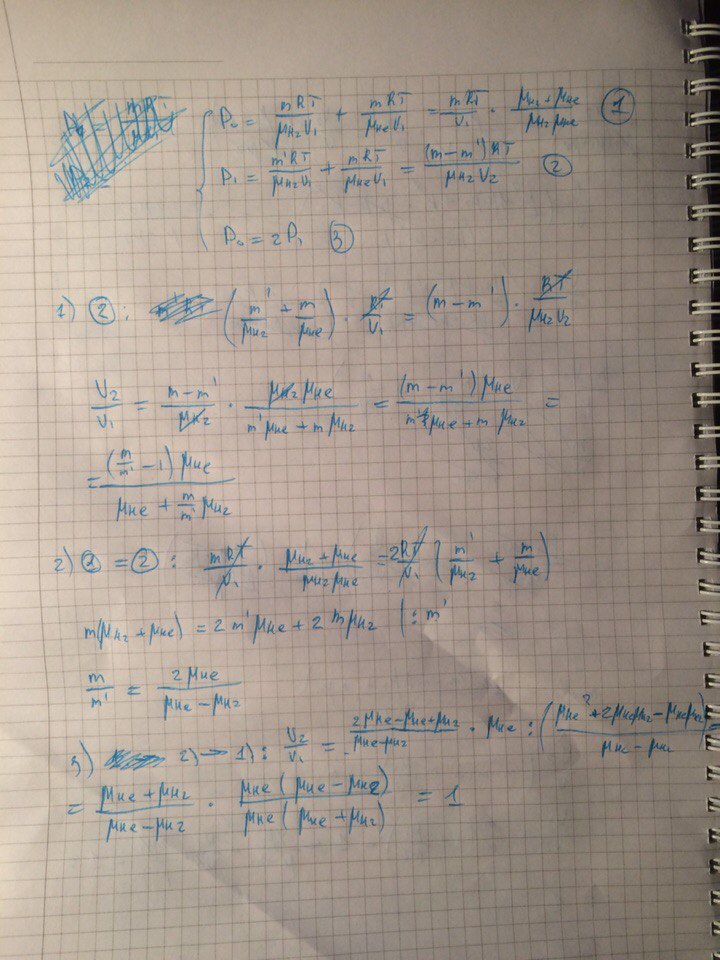 P₀ = mRT/(μ_H₂V₁) + mRT/(μ_HeV₁) = mRT/V₁ · (μ_H₂ + μ_He)/(μ_H₂ μ_He) ①
P₁ = m'RT/(μ_H₂V₁) + mRT/(μ_HeV₁) = (m-m')RT/(μ_H₂V₂) ②
P₀ = 2P₁ ③
1) ② : (m'/μ_H₂ + m/μ_He) · RT/V₁ = (m-m') · RT/(μ_H₂V₂)
V₂/V₁ = (m-m')/μ_H₂ · μ_H₂μ_He/(m'μ_He + mμ_H₂) = (m-m')μ_He/(m'μ_He + mμ_H₂) =
= (m/m' - 1)μ_He/(μ_He + m/m' μ_H₂)
2) ② = ② : mRT/V₁ · (μ_H₂ + μ_He)/(μ_H₂μ_He) = 2RT/V₁ (m'/μ_H₂ + m/μ_He)
m(μ_H₂ + μ_He) = 2m'μ_He + 2mμ_H₂ | : m'
m/m' = 2μ_He/(μ_He - μ_H₂)
3) 2) → 1) : V₂/V₁ = (2μ_He - μ_He + μ_H₂)/(μ_He - μ_H₂) · μ_He : ((μ_He² + 2μ_Heμ_H₂ - μ_Heμ_H₂)/(μ_He - μ_H₂)) =
= (μ_He + μ_H₂)/(μ_He - μ_H₂) · μ_He(μ_He - μ_H₂)/(μ_He(μ_He + μ_H₂)) = 1